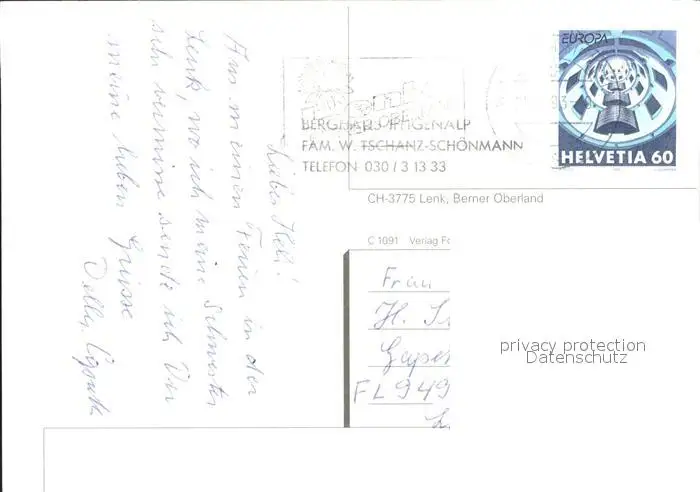 Liebe Heli!
Aus meinen Ferien in der
Lenk, wo ich meine Schwester
sehr vermisse sende ich Dir
meine lieben Grüsse
EUROPA
93
HELVETIA 60
BERGHAUS IFFIGENALP
FAM. W. TSCHANZ-SCHÖNMANN
TELEFON 030 / 3 13 33
CH-3775 Lenk, Berner Oberland
C 1091 Verlag
Frau
H.
FL 949
privacy protection
Datenschutz